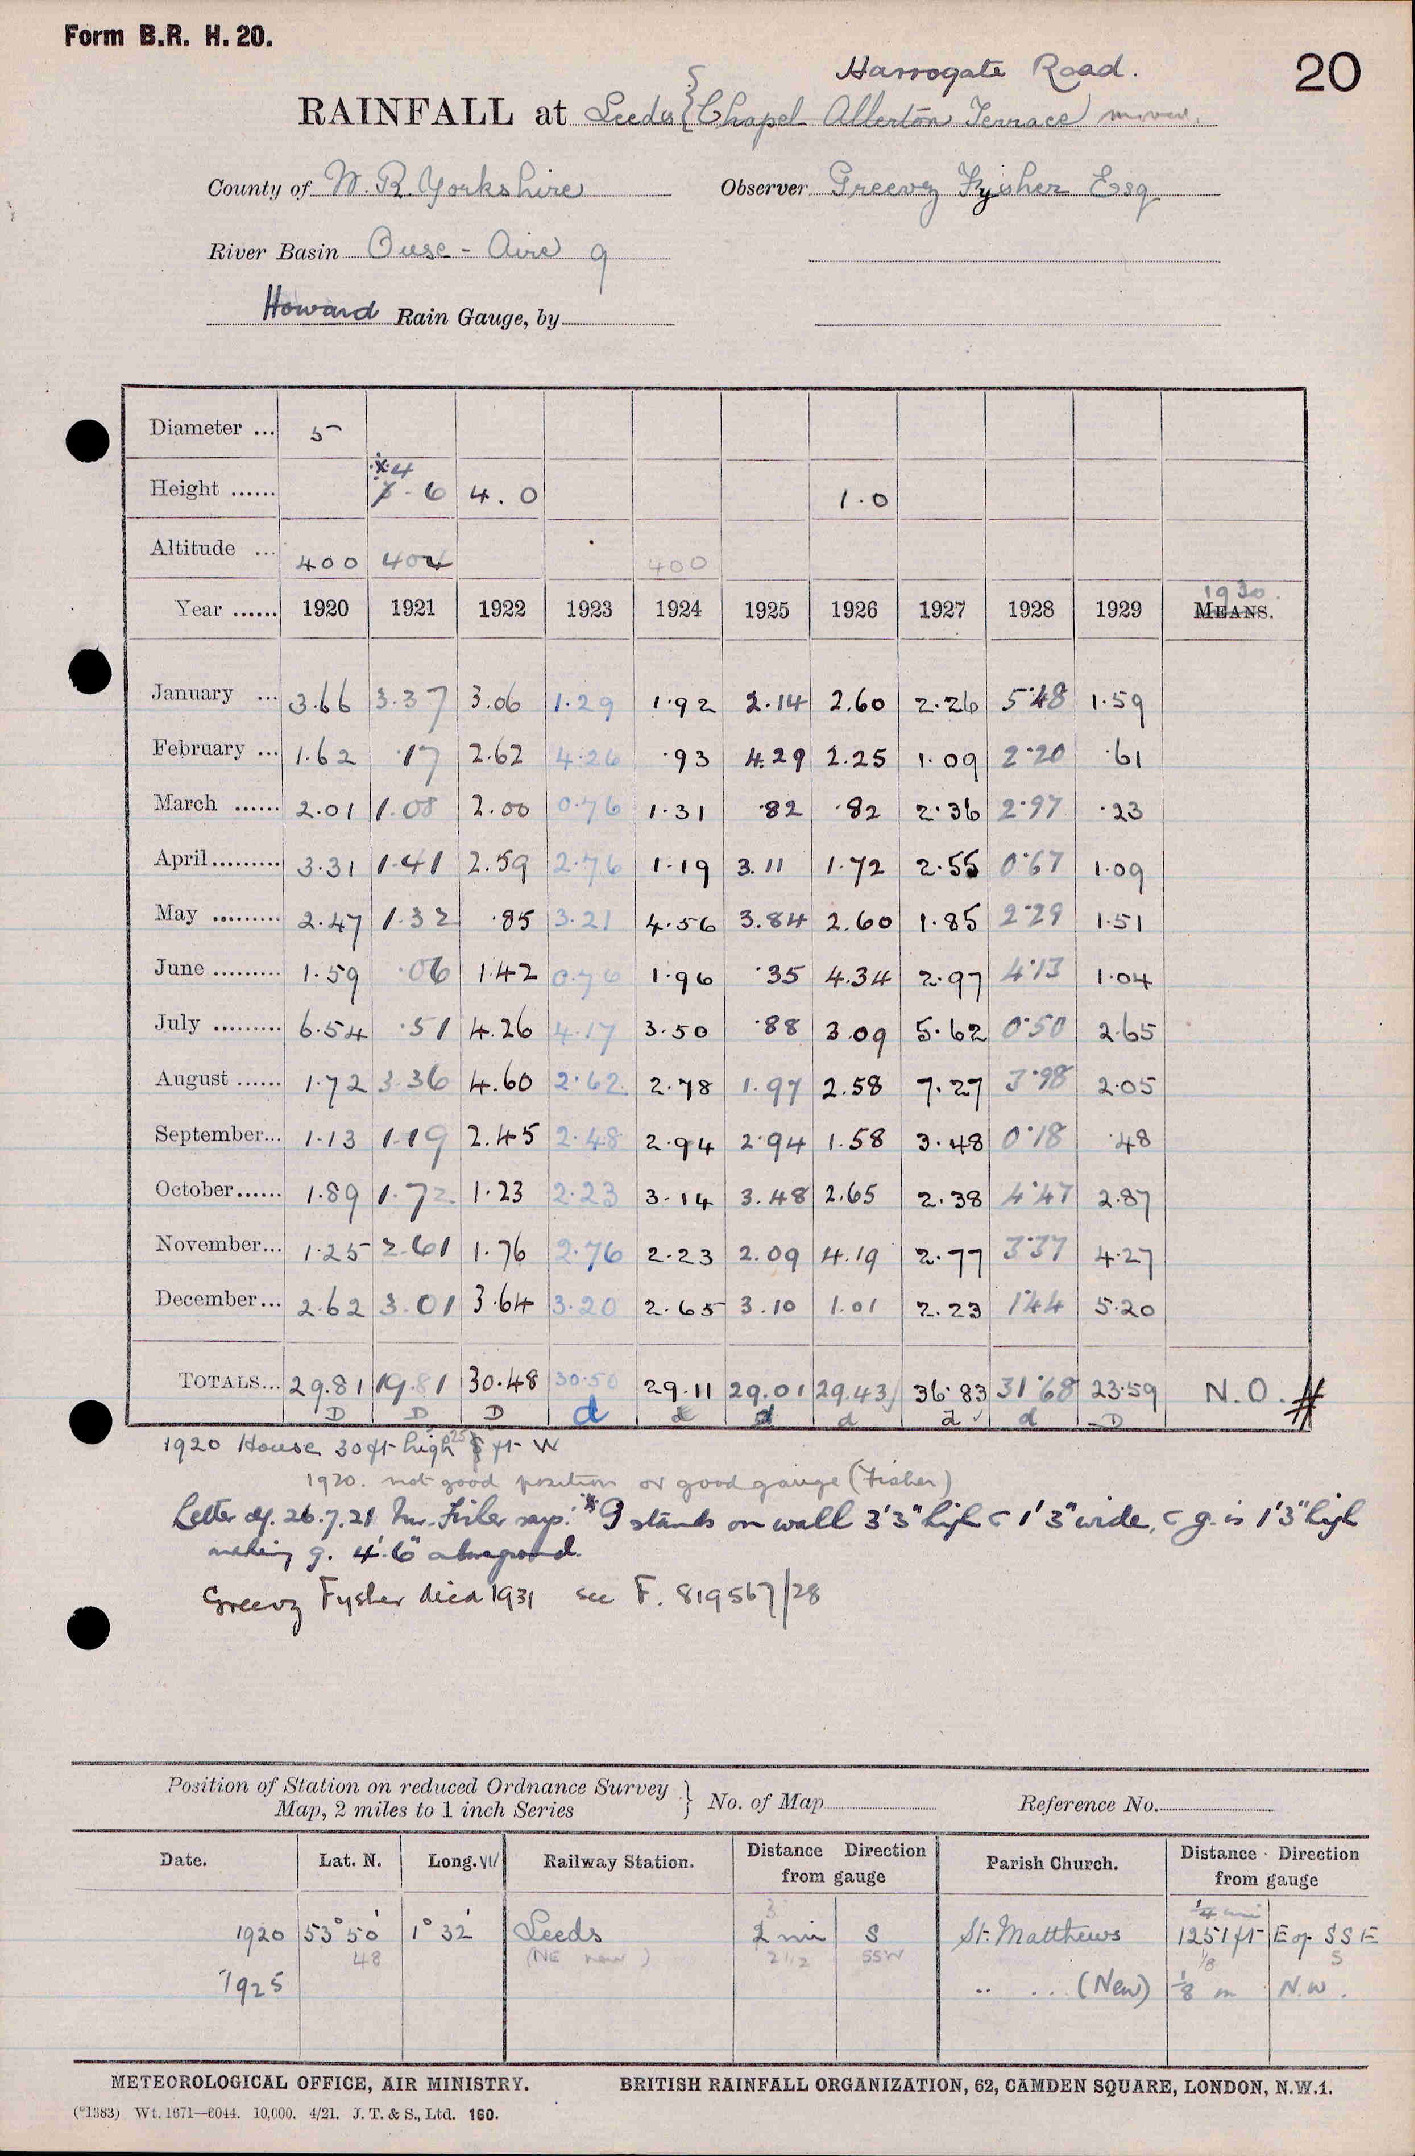 Form B.R. H. 20.
20
Harrogate Road.
RAINFALL at Leeds { Chapel Allerton Terrace moved.
County of W. R. Yorkshire Observer Greevz Fysher Esq
River Basin Ouse - Aire 9
Howard Rain Gauge, by
Diameter ... 5
Height ...... 4.0 1.0
Altitude ... 400 404 400
1930.
Year ...... 1920 1921 1922 1923 1924 1925 1926 1927 1928 1929 MEANS.
January ... 3.66 3.37 3.06 1.29 1.92 2.14 2.60 2.26 5.48 1.59
February ... 1.62 .17 2.62 4.26 .93 4.29 2.25 1.09 2.20 .61
March ...... 2.01 1.08 2.00 0.76 1.31 .82 .82 2.36 2.97 .23
April......... 3.31 1.41 2.59 2.76 1.19 3.11 1.72 2.55 0.67 1.09
May ......... 2.47 1.32 .85 3.21 4.56 3.84 2.60 1.85 2.29 1.51
June ......... 1.59 .06 1.42 0.76 1.96 .35 4.34 2.97 4.13 1.04
July ......... 6.54 .51 4.26 4.17 3.50 .88 3.09 5.62 0.50 2.65
August ...... 1.72 3.36 4.60 2.62 2.78 1.97 2.58 7.27 3.98 2.05
September... 1.13 1.19 2.45 2.48 2.94 2.94 1.58 3.48 0.18 .48
October...... 1.89 1.72 1.23 2.23 3.14 3.48 2.65 2.38 4.47 2.87
November... 1.25 2.61 1.76 2.76 2.23 2.09 4.19 2.77 3.37 4.27
December... 2.62 3.01 3.64 3.20 2.65 3.10 1.01 2.23 1.44 5.20
TOTALS... 29.81 19.81 30.48 30.50 29.11 29.01 29.43 36.83 31.68 23.59 N.O. #
D D D d d d d d d D
1920 House 30 ft high 25 ft W
1920. not good position or good gauge (Fisher)
Letter of. 26.7.21 Mr. Fisher says: * G stands on wall 3'3" high c 1'3" wide, c g. is 1'3" high
making g. 4'.6" aboveground.
Greevz Fysher died 1931 see F. 819567/28
Position of Station on reduced Ordnance Survey
Map, 2 miles to 1 inch Series } No. of Map Reference No.
Date. Lat. N. Long. W Railway Station. Distance Direction from gauge Parish Church. Distance Direction from gauge
1/4 mi
1920 53° 50' 1° 32' Leeds 2 mi S St. Matthews 1251 ft E of SSE
48 (NE new) 2 1/2 SSW 1/8 S
1925 .. ... (New) 1/8 m N.W.
METEOROLOGICAL OFFICE, AIR MINISTRY. BRITISH RAINFALL ORGANIZATION, 62, CAMDEN SQUARE, LONDON, N.W.1.
(*1383) Wt. 1671—6044. 10,000. 4/21. J. T. & S., Ltd. 160.